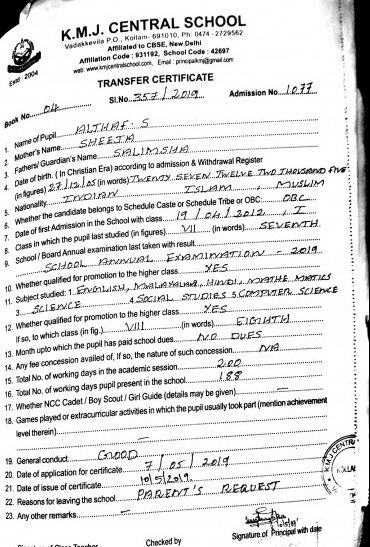 K.M.J. CENTRAL SCHOOL
Vadakkevila P.O., Kollam- 691010, Ph: 0474 - 2729562
Affiliated to CBSE, New Delhi
Affiliation Code : 931192, School Code : 42697
web: www.kmjcentralschool.com, Email : principalkmj@gmail.com
Estd : 2004
TRANSFER CERTIFICATE
Book No. 04 Sl.No. 357/2019 Admission No. 1077
1. Name of Pupil ALTHAF. S
2. Mother's Name SHEEJA
3. Fathers/ Guardian's Name SALIMSHA
4. Date of birth. ( In Christian Era) according to admission & Withdrawal Register
(in figures) 27/12/05 (in words) TWENTY SEVEN TWELVE TWO THOUSAND FIVE
5. Nationality INDIAN ISLAM, MUSLIM
6. Whether the candidate belongs to Schedule Caste or Schedule Tribe or OBC: OBC
7. Date of first Admission in the School with class 19/04/2012, I
8. Class in which the pupil last studied (in figures) VII (in words) SEVENTH
9. School / Board Annual examination last taken with result
SCHOOL ANNUAL EXAMINATION - 2019
10. Whether qualified for promotion to the higher class YES
11. Subject studied: 1. ENGLISH, MALAYALAM, HINDI, MATHEMATICS
3. SCIENCE 4. SOCIAL STUDIES 5. COMPUTER SCIENCE
12. Whether qualified for promotion to the higher class YES
If so, to which class (in fig.) VIII (in words) EIGHTH
13. Month upto which the pupil has paid school dues NO DUES
14. Any fee concession availed of, If so, the nature of such concession NA
15. Total No. of working days in the academic session 200
16. Total No. of working days pupil present in the school 188
17. Whether NCC Cadet / Boy Scout / Girl Guide (details may be given) —
18. Games played or extracurricular activities in which the pupil usually took part (mention achievement
level therein) —
19. General conduct GOOD
20. Date of application for certificate 7/05/2019
21. Date of issue of certificate 10/5/2019
22. Reasons for leaving the school PARENT'S REQUEST
23. Any other remarks —
K.M.J. CENTRAL
10/5/19
Checked by
Signature of Principal with date